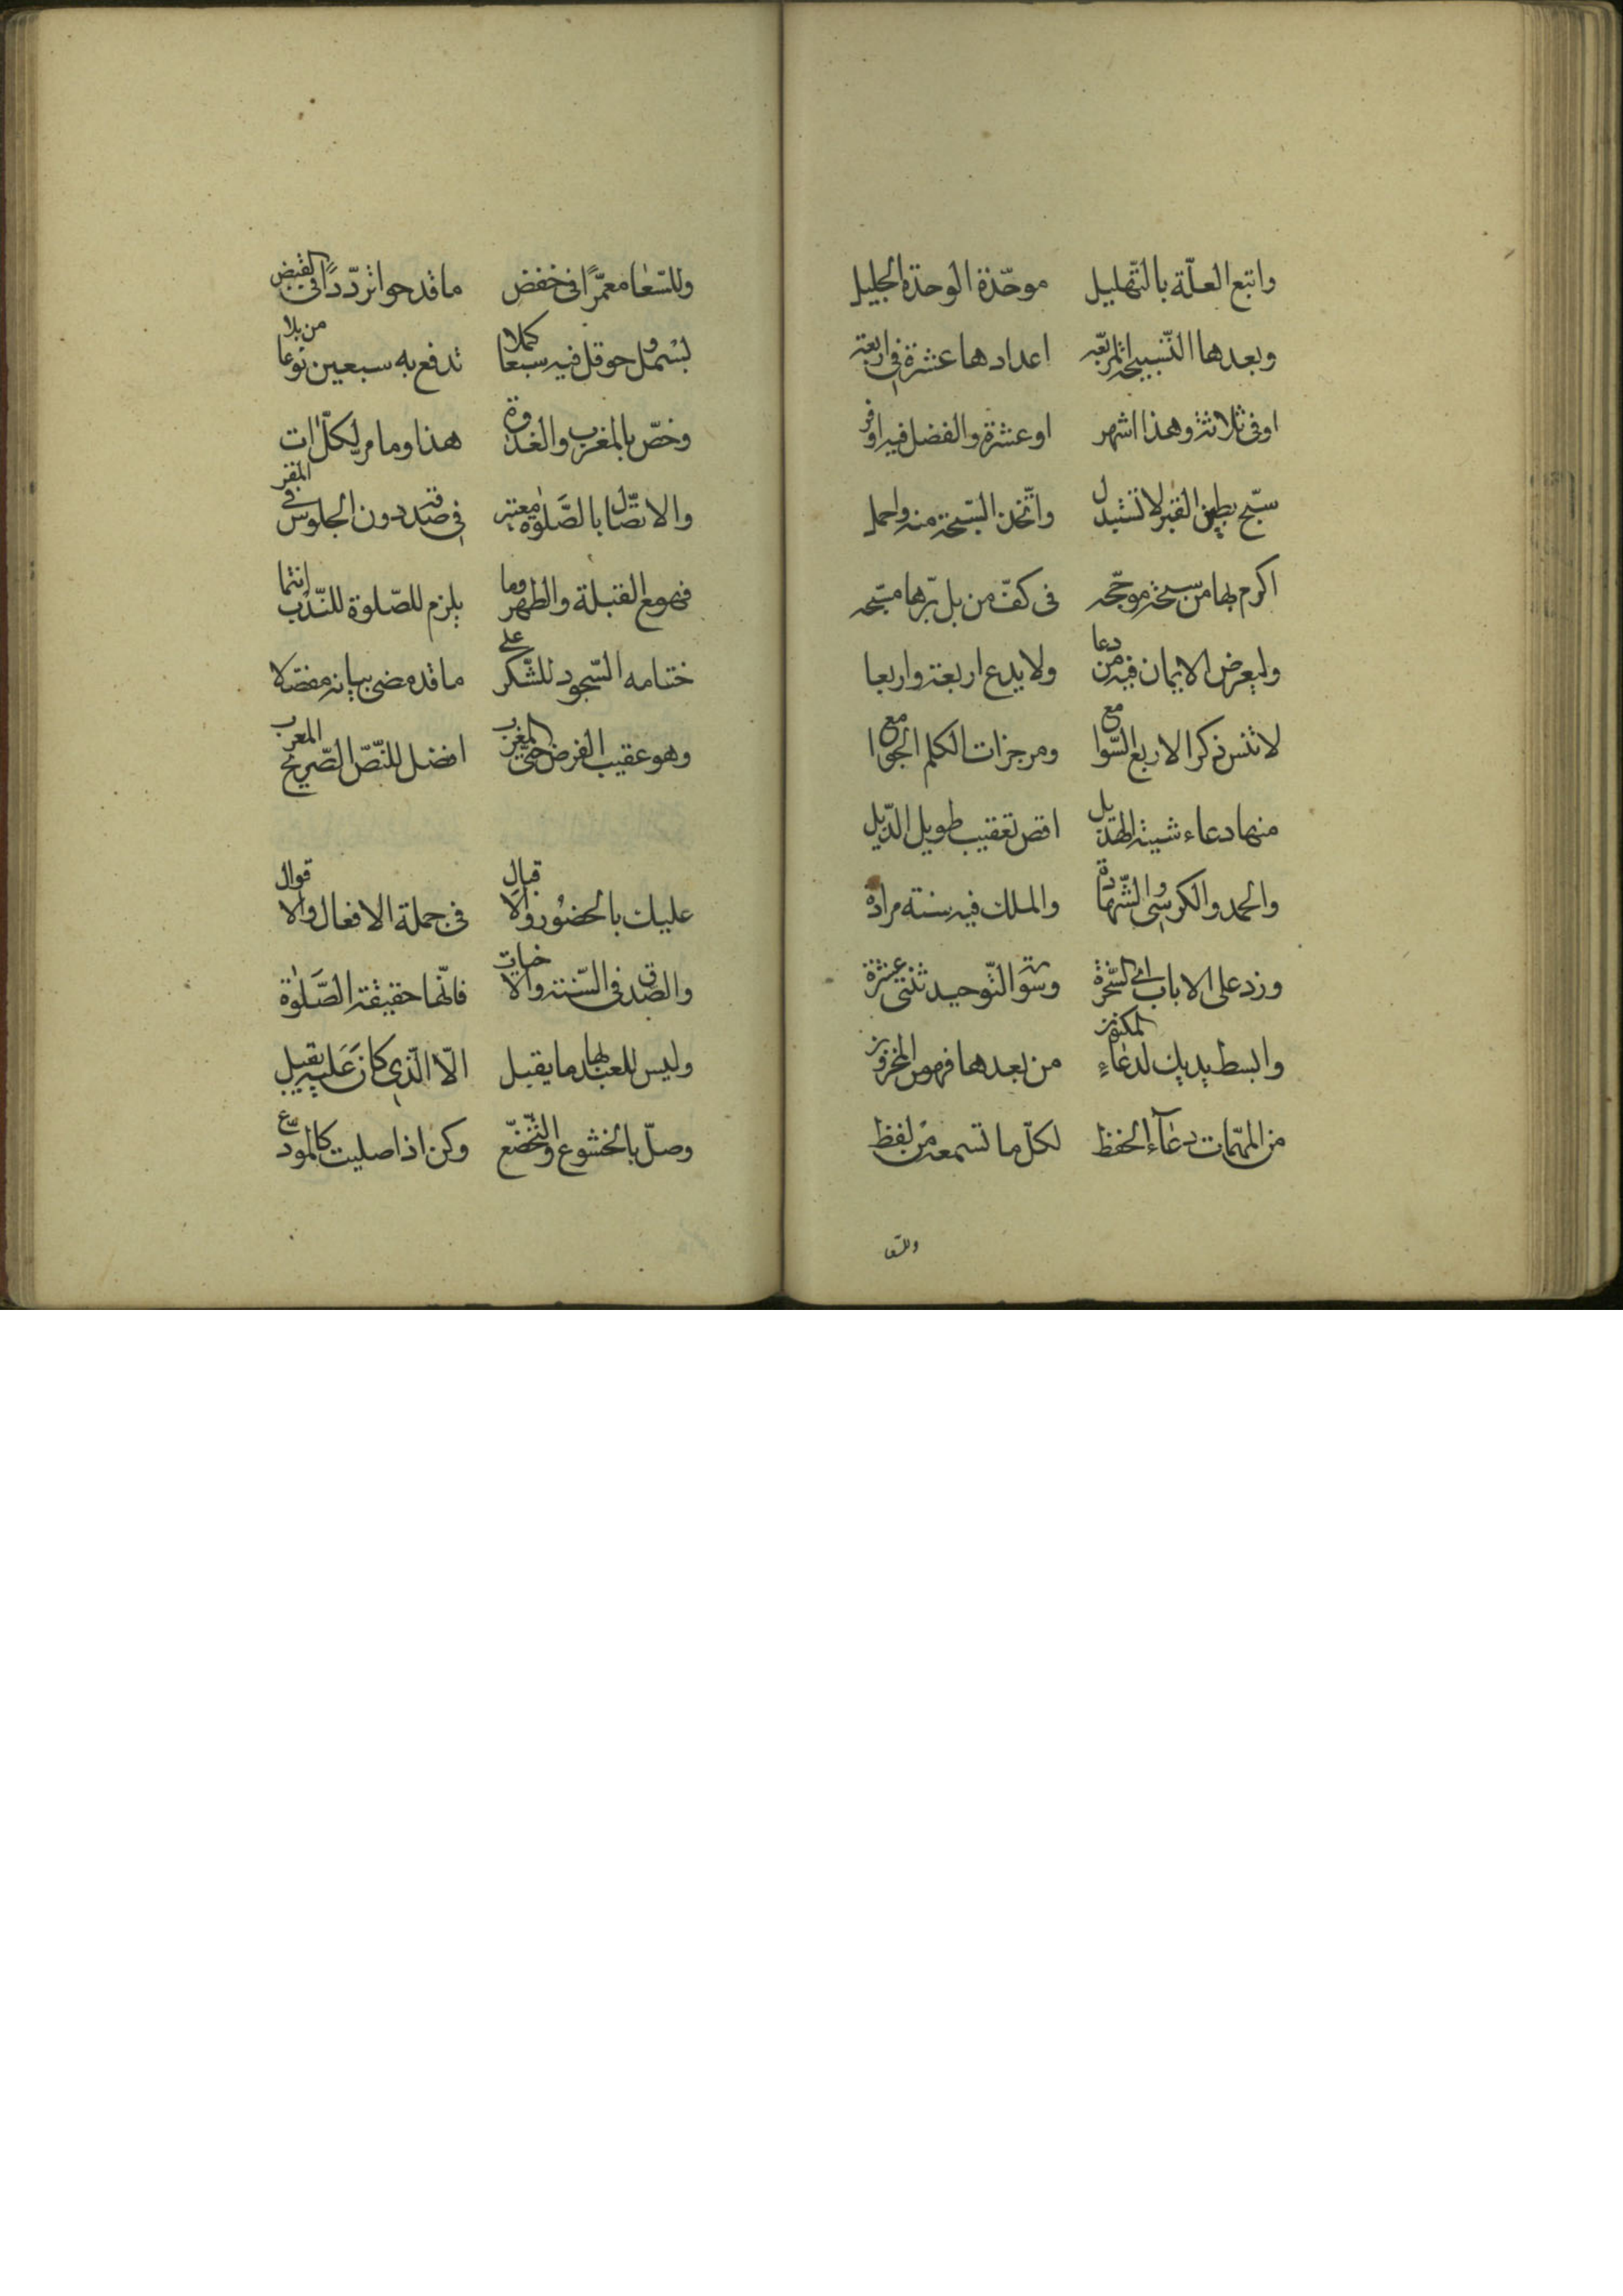 واتبع العلّة بالتّهليل موحّدة الوحدة الجليل
وبعدها التّسبيح المربّعه اعدادها عشرة في اربعة
او في ثلاثة وهذا اشهر او عشرة والفضل فيه اوفر
سبّح بطين القبر لا تستبدل واتّخذ السّبحة منه واحمل
اكرم بها من سبحة موجّحه في كفّ من بل تربها مسبّحه
وليعرض الايمان فيه من دعا ولا يدع اربعة واربعا
لا تنس ذكر الاربع السّوامع وموجزات الكلم الجوامع
منها دعاء شيبة الهذيل اقص تعقيب طويل الذّيل
والحمد والكرسي والشّهادة والملك فيه سنته مرادة
وزد على الاباب اي السّخرة وسورة التّوحيد ثنتي عشرة
وابسط يديك لدعاء المكنون من بعدها فهو من المخزون
من المهمّات دعاء الحفظ لكلّ ما تسمعه من لفظ
وللسّعا
وللسّعا معمّرا في خفض ما قد حوا تردّدا في القبض
بسمل وحوقل فيه سبعا كملا تدفع به سبعين نوعا من بلا
وخصّ بالمغرب والغدوة هذا وما مر لكلّ ات
والاتّصال بالصّلوة معتبر في صدقه دون الجلوس في المقر
فهو مع القبلة والطهر وما يلزم للصّلوة للنّدب انتما
ختامه السّجود للشّكر على ما قد مضى بيانه مفصّلا
وهو عقيب الفرض حتّى المغرب افضل للنّصّ الصّريح المعرب
عليك بالحضور والاقبال في جملة الافعال والاقوال
والصّدق في السّنة والاخبات فانّها حقيقة الصّلوة
وليس للعبد بها ما يقبل الّا الّذي كان عليه يقبل
وصلّ بالخشوع والتّخضّع وكن اذا صليت كالمودّع